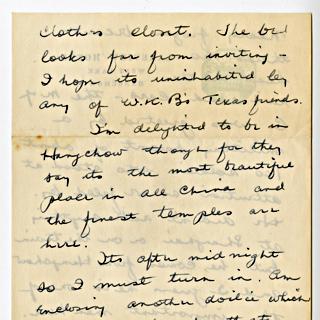 clothes closet. The bed
looks far from inviting -
I hope its uninhabited by
any of W.K.B's Texas friends.
I'm delighted to be in
Hangchow though for they
say its the most beautiful
place in all China and
the finest temples are
here.
Its after midnight
so I must turn in. Am
enclosing another doilie which